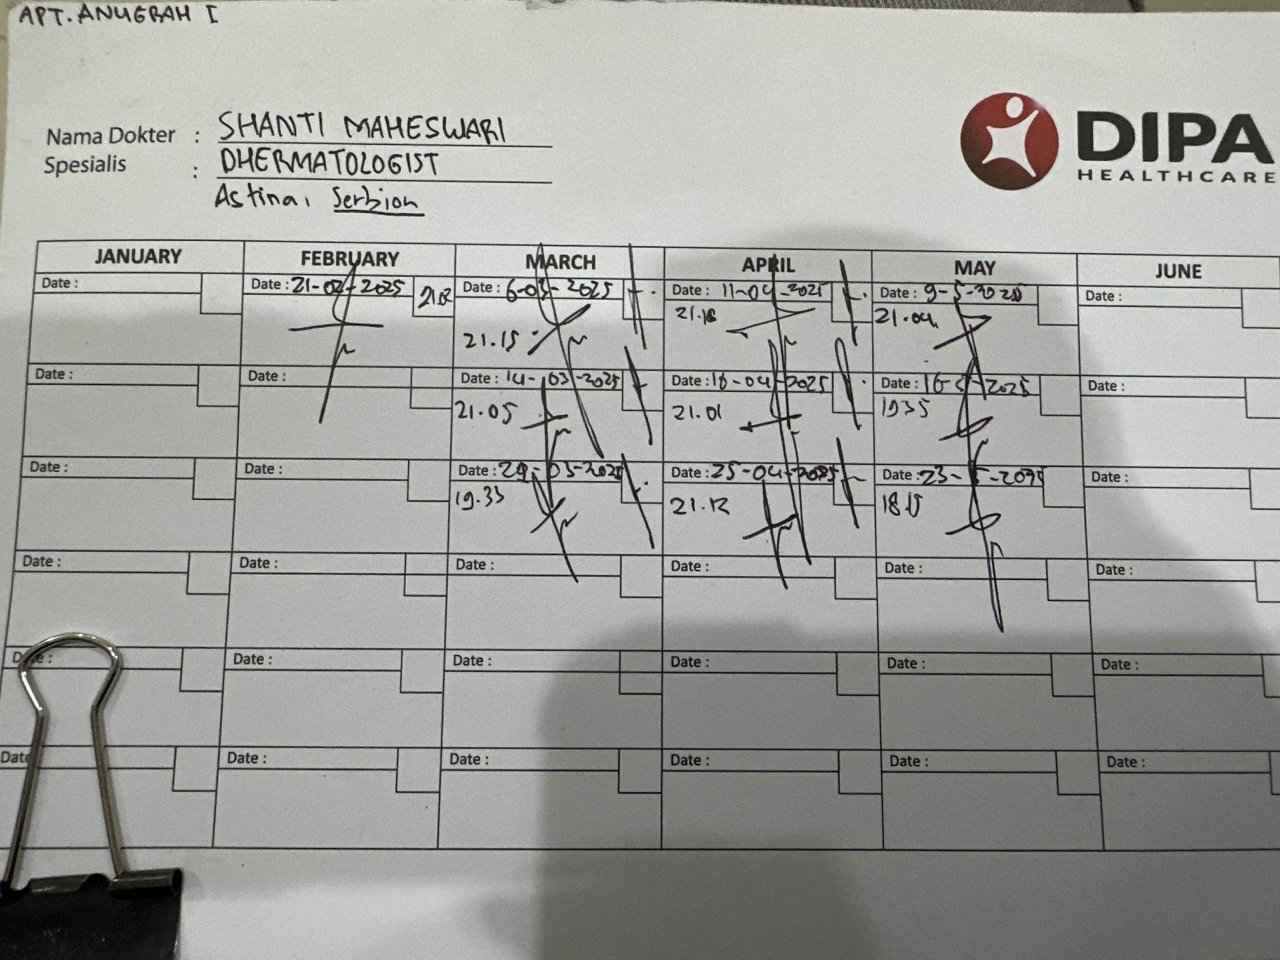 APT. ANUGRAH I
Nama Dokter : SHANTI MAHESWARI
Spesialis : DHERMATOLOGIST
Astina, Serbion
DIPA
HEALTHCARE
JANUARY FEBRUARY MARCH APRIL MAY JUNE
Date : Date : 21-02-2025 21.02 Date : 6-03-2025 Date : 11-04-2025 Date : 9-5-2025 Date :
21.15 21.18 21.04
Date : Date : Date : 14-03-2025 Date : 16-04-2025 Date : 16-5-2025 Date :
21.05 21.01 1935
Date : Date : Date : -03-2025 Date : 25-04-2025 Date : 23-5-2025 Date :
19.33 21.12
Date : Date : Date : Date : Date : Date :
Date : Date : Date : Date : Date : Date :
Date : Date : Date : Date : Date : Date :